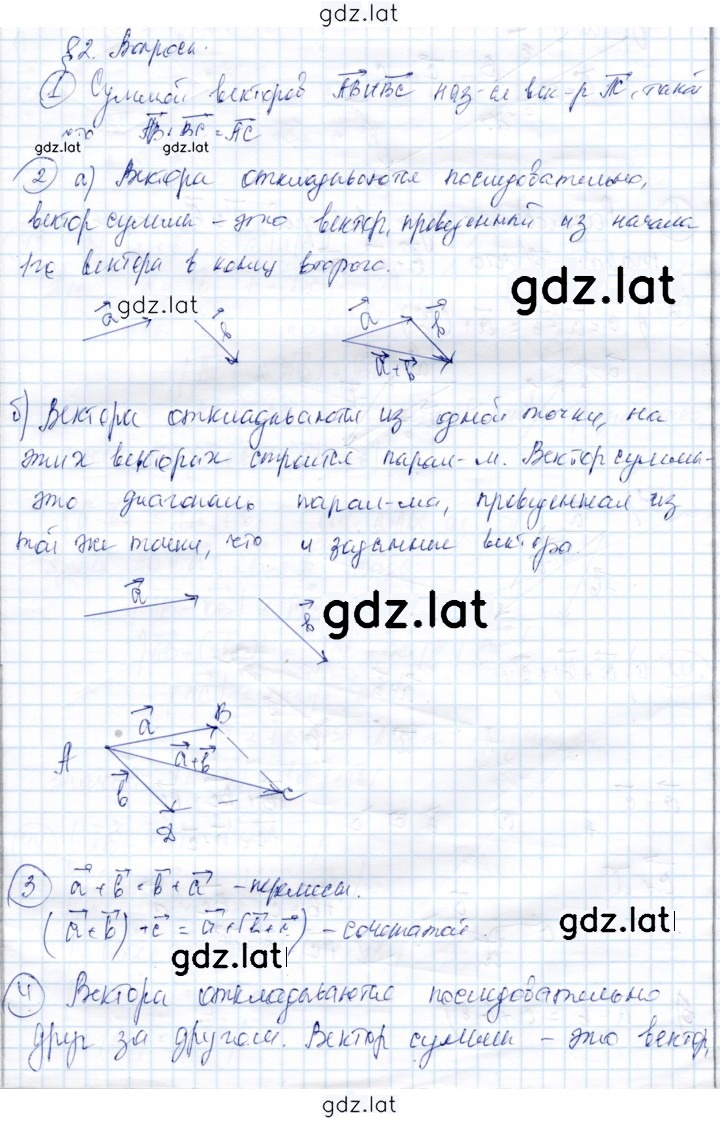 gdz.lat
§2. Вопросы.
1 Суммой векторов AB и BC наз-ся век-р AC, такой
что AB + BC = AC
gdz.lat gdz.lat
2 а) Вектора откладываются последовательно,
вектор суммы – это вектор, проведенный из начала
1го вектора в конец второго.
gdz.lat
gdz.lat
a b a b
a+b
б) Вектора откладываются из одной точки, на
этих векторах строится парал-м. Вектор суммы-
это диагональ парал-ма, проведенная из
той же точки, что и заданные вектора.
a b
gdz.lat
a B
A a+b
b C
D
3 a + b = b + a – перемест.
(a+b)+c = a+(b+c) – сочетатой.
gdz.lat
gdz.lat
4 Вектора откладываются последовательно
друг за другом. Вектор суммы – это вектор,
gdz.lat